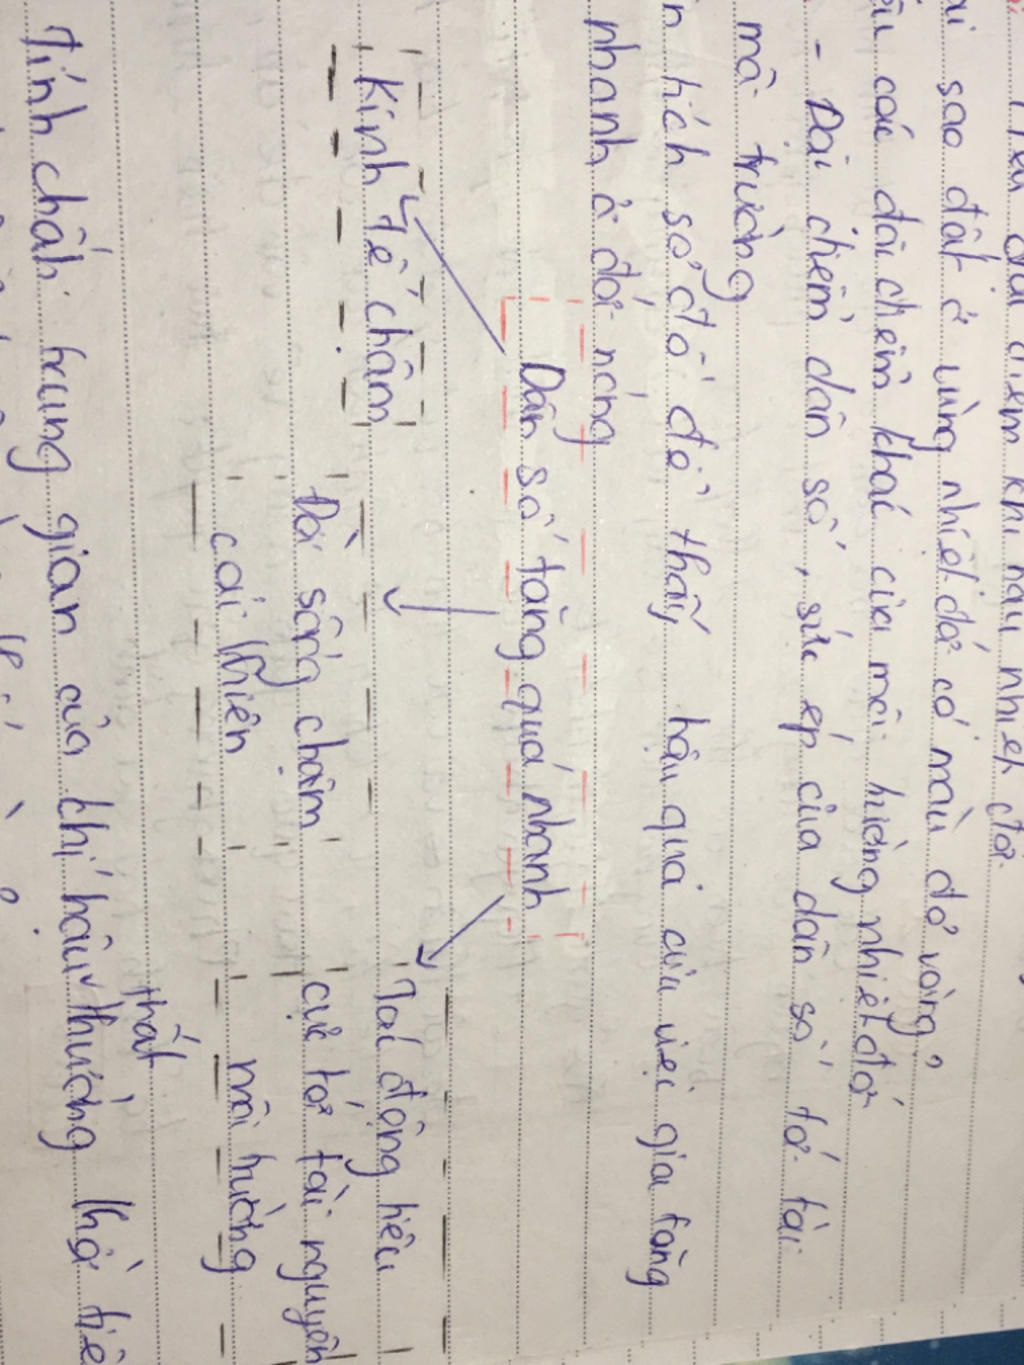 điểm khí hậu nhiệt đới.
sao đất ở vùng nhiệt đới có màu đỏ vàng?
các đặc điểm khác của môi trường nhiệt đới
- Đặc điểm dân số, sức ép của dân số tới tài
môi trường
tích sơ đồ để thấy hậu quả của việc gia tăng
nhanh ở đới nóng
Dân số tăng quá nhanh
Kinh tế chậm
Đời sống chậm
cải thiện
Tác động tiêu
cực tới tài nguyên
môi trường
thất
Tính chất trung gian của khí hậu thường thời tiế